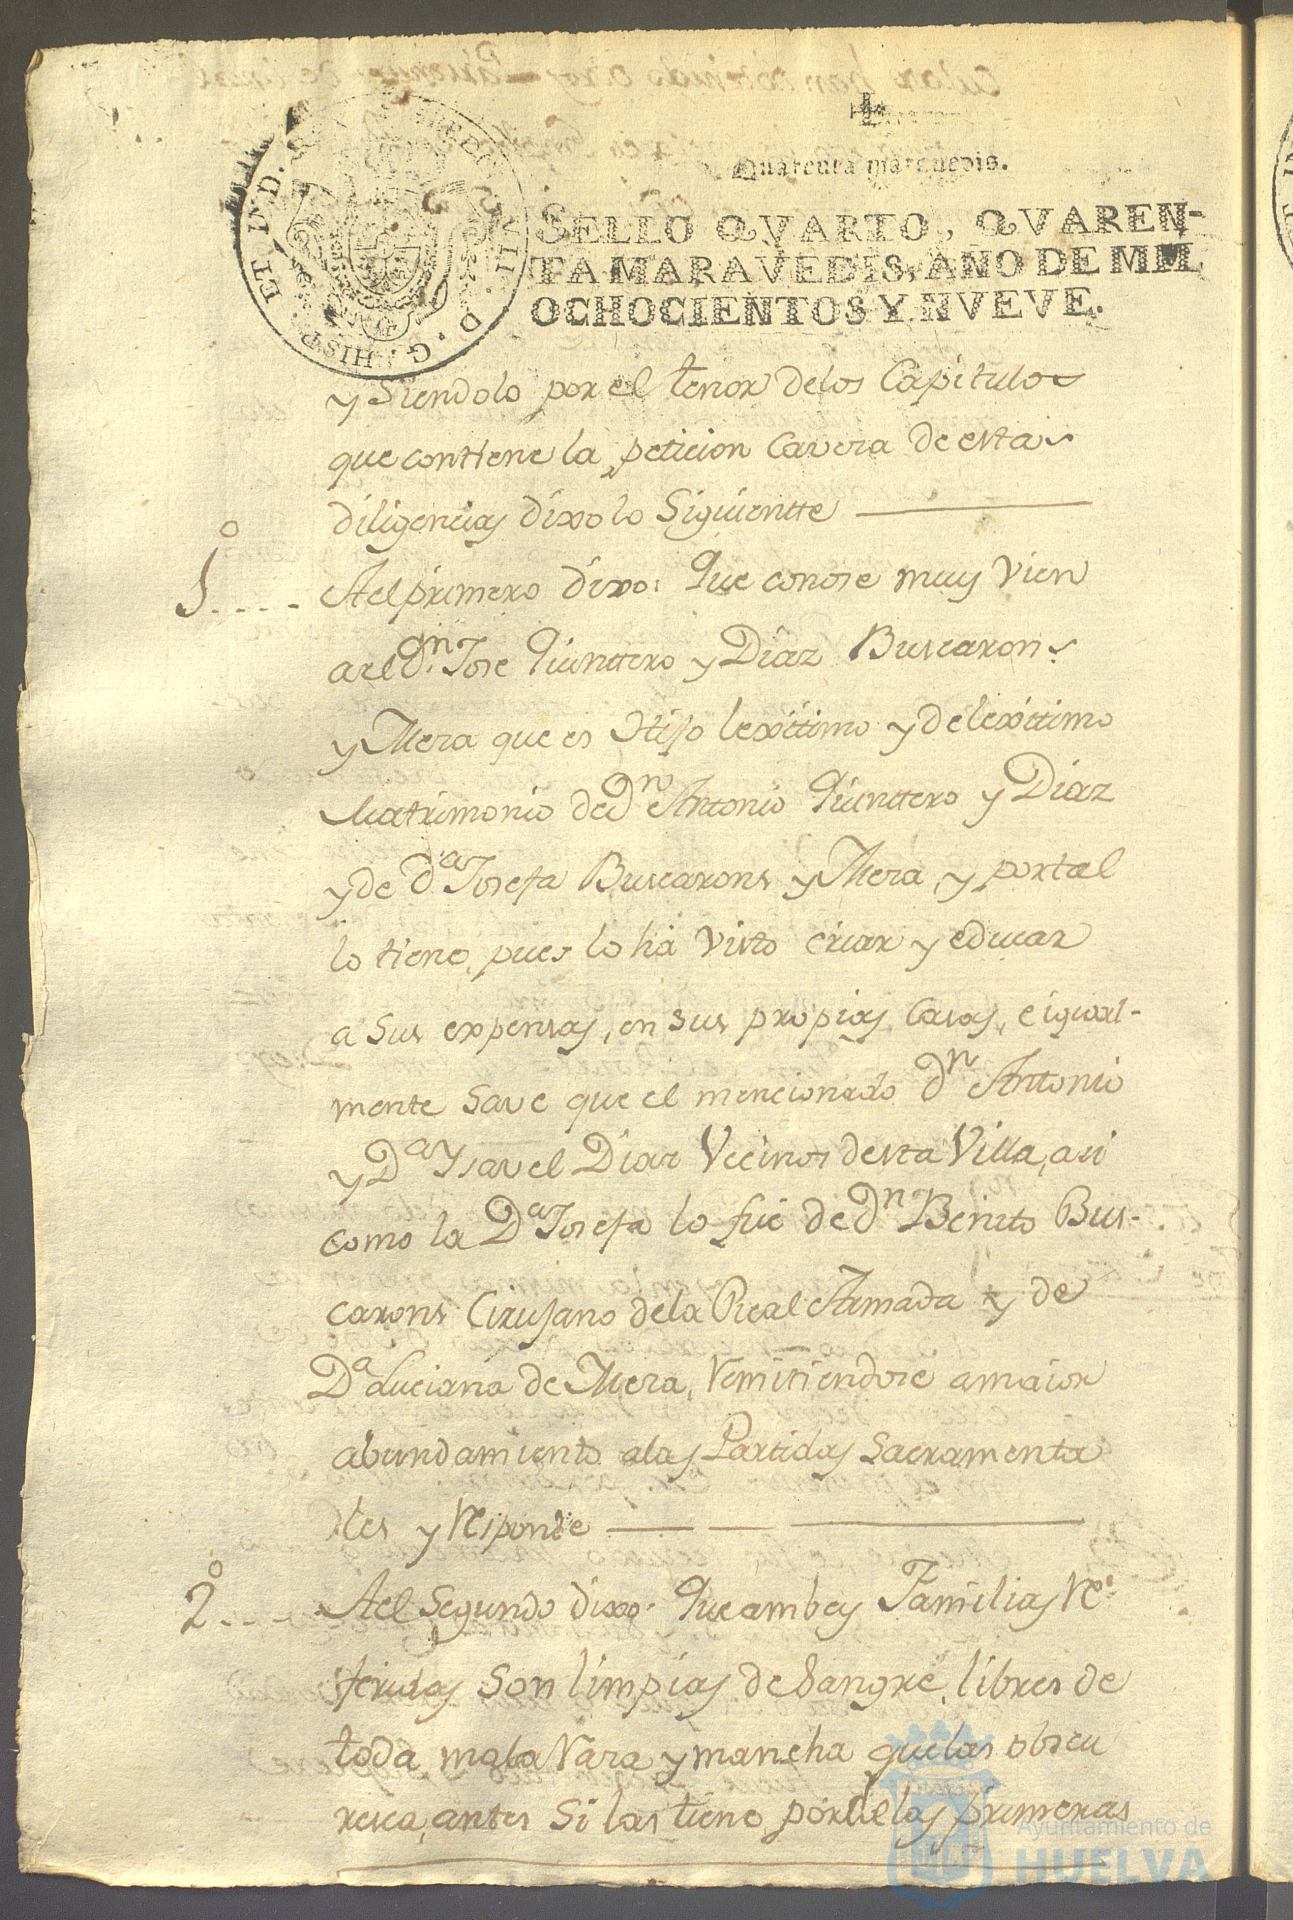 Quarenta maravedis.
SELLO QVARTO, QVAREN-
TA MARAVEDIS, AÑO DE MIL
OCHOCIENTOS Y NVEVE.
y Siendolo por el tenor delos Capitulos
que contiene la peticion Cavera de estas
diligencias dixo lo Siguientte
1º.... Ael primero dixo: Que conose muy Vien
ael Dn. Jose Quinttero y Diaz Buscarons
y Mera que es Hijo lexittimo y de lexittimo
Matrimonio de Dn Antonio Quinttero y Diaz
y de Da Josefa Buscarons y Mera, y portal
lo tiene, pues lo ha visto criar y educar
a Sus expensas, en sus propias Casas, e igual-
mente save que el mencionado Dn Antonio
y Da Ysavel Diaz Vecinos desta Villa, asi
como la Da Josefa lo fue de Dn Benito Bus-
carons Cirujano dela Real Armada y de
Da Luciana de Mera, Remitiendose a maior
abundamiento alas Partidas Sacramenta
les y Responde
2º... Ael Segundo dixo: Que ambas Familias Re
feridas Son limpias de Sangre, libres de
toda mala Rara y mancha que las obscu
resca, antes Si las tiene por de las primeras
Ayuntamiento de
HUELVA